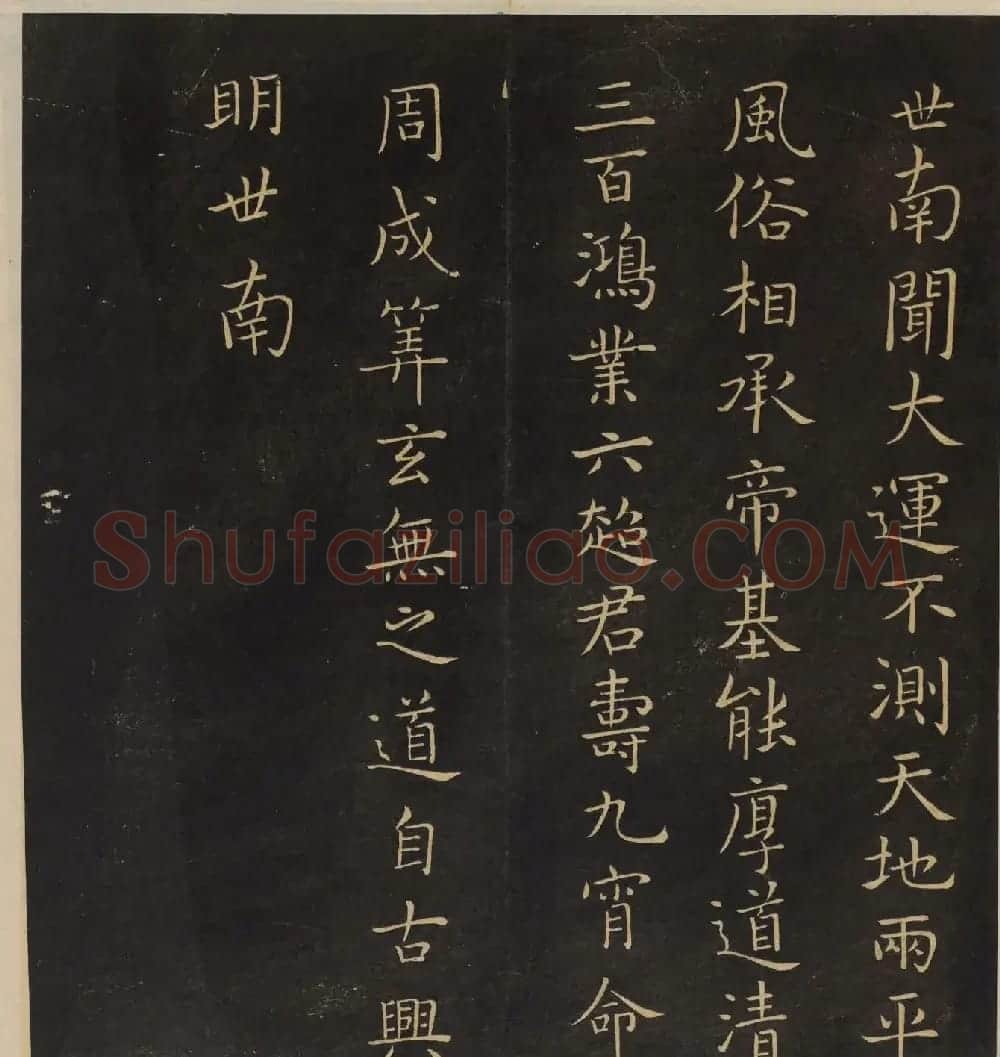 世南聞大運不測天地兩平
風俗相承帝基能厚道清
三百鴻業六超君壽九宵命
周成筭玄無之道自古興
明世南
Shufaziliao.COM